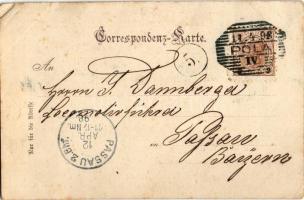 Correspondenz-Karte.
11 4 98
POLA
IV
An
Herrn J. Damberger
in Passau
Bayern
Nur für die Adresse
PASSAU 2. Bhf.
12
APR
98